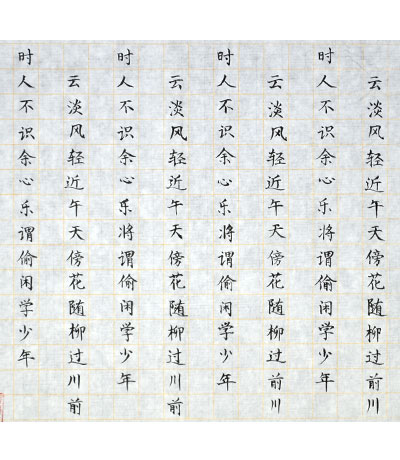 云淡风轻近午天傍花随柳过前川
时人不识余心乐将谓偷闲学少年
云淡风轻近午天傍花随柳过前川
时人不识余心乐将谓偷闲学少年
云淡风轻近午天傍花随柳过川前
时人不识余心乐将谓偷闲学少年
云淡风轻近午天傍花随柳过川前
时人不识余心乐谓偷闲学少年